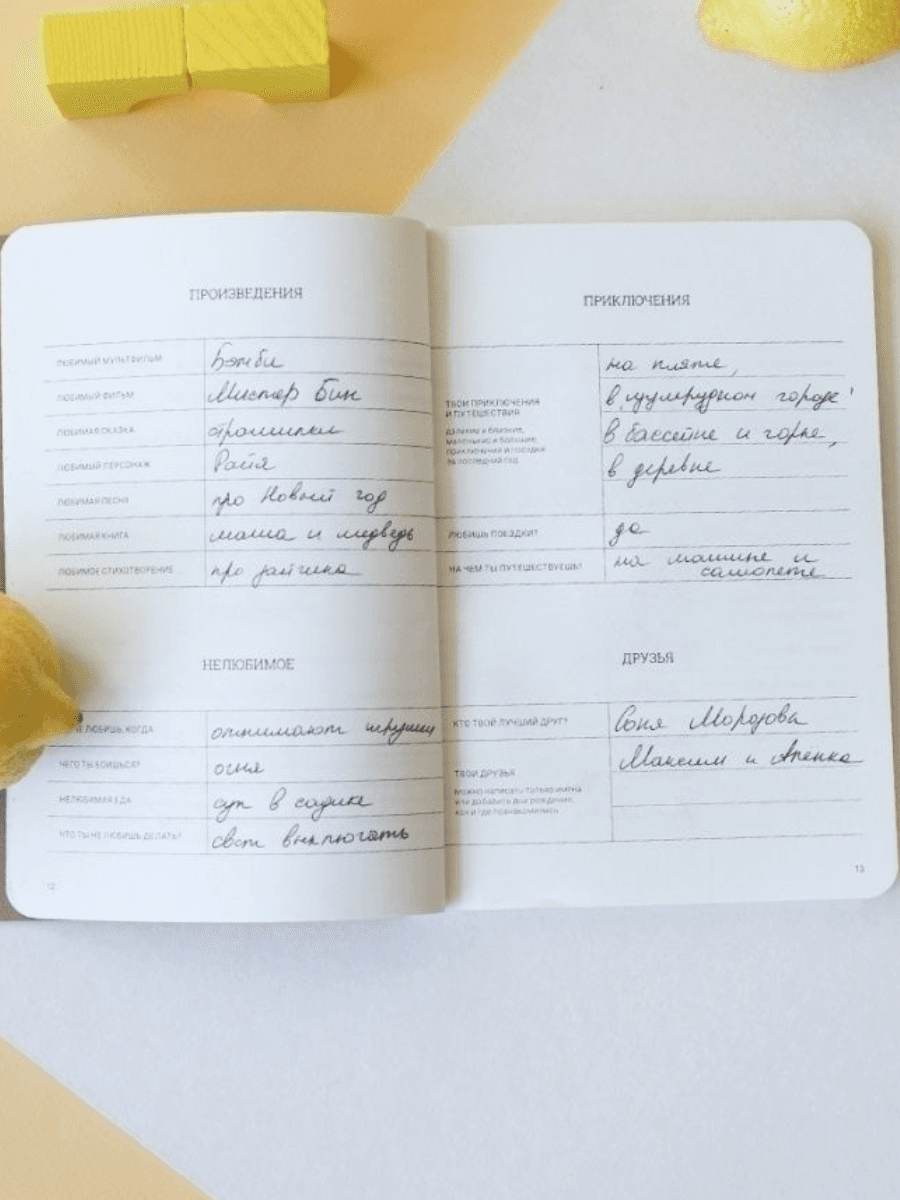 ПРОИЗВЕДЕНИЯ
ЛЮБИМЫЙ МУЛЬТФИЛЬМ Бэмби
ЛЮБИМЫЙ ФИЛЬМ Мистер Бин
ЛЮБИМАЯ СКАЗКА
ЛЮБИМЫЙ ПЕРСОНАЖ Райя
ЛЮБИМАЯ ПЕСНЯ про Новый год
ЛЮБИМАЯ КНИГА маша и медведь
ЛЮБИМОЕ СТИХОТВОРЕНИЕ про зайчика
НЕЛЮБИМОЕ
НЕ ЛЮБИШЬ, КОГДА отнимают игрушки
ЧЕГО ТЫ БОИШЬСЯ? огня
НЕЛЮБИМАЯ ЕДА суп в садике
ЧТО ТЫ НЕ ЛЮБИШЬ ДЕЛАТЬ? свет выключать
12
ПРИКЛЮЧЕНИЯ
ТВОИ ПРИКЛЮЧЕНИЯ
И ПУТЕШЕСТВИЯ
далекие и близкие,
маленькие и большие,
приключения и поездки
за последний год
на пляже,
в "изумрудном городе"
в бассейне и горке,
в деревне
ЛЮБИШЬ ПОЕЗДКИ? да
НА ЧЕМ ТЫ ПУТЕШЕСТВУЕШЬ? на машине и
самолете
ДРУЗЬЯ
КТО ТВОЙ ЛУЧШИЙ ДРУГ? Соня Морозова
Максим и Аленка
ТВОИ ДРУЗЬЯ
Можно написать только имена
или добавить дни рождения,
как и где познакомились
13